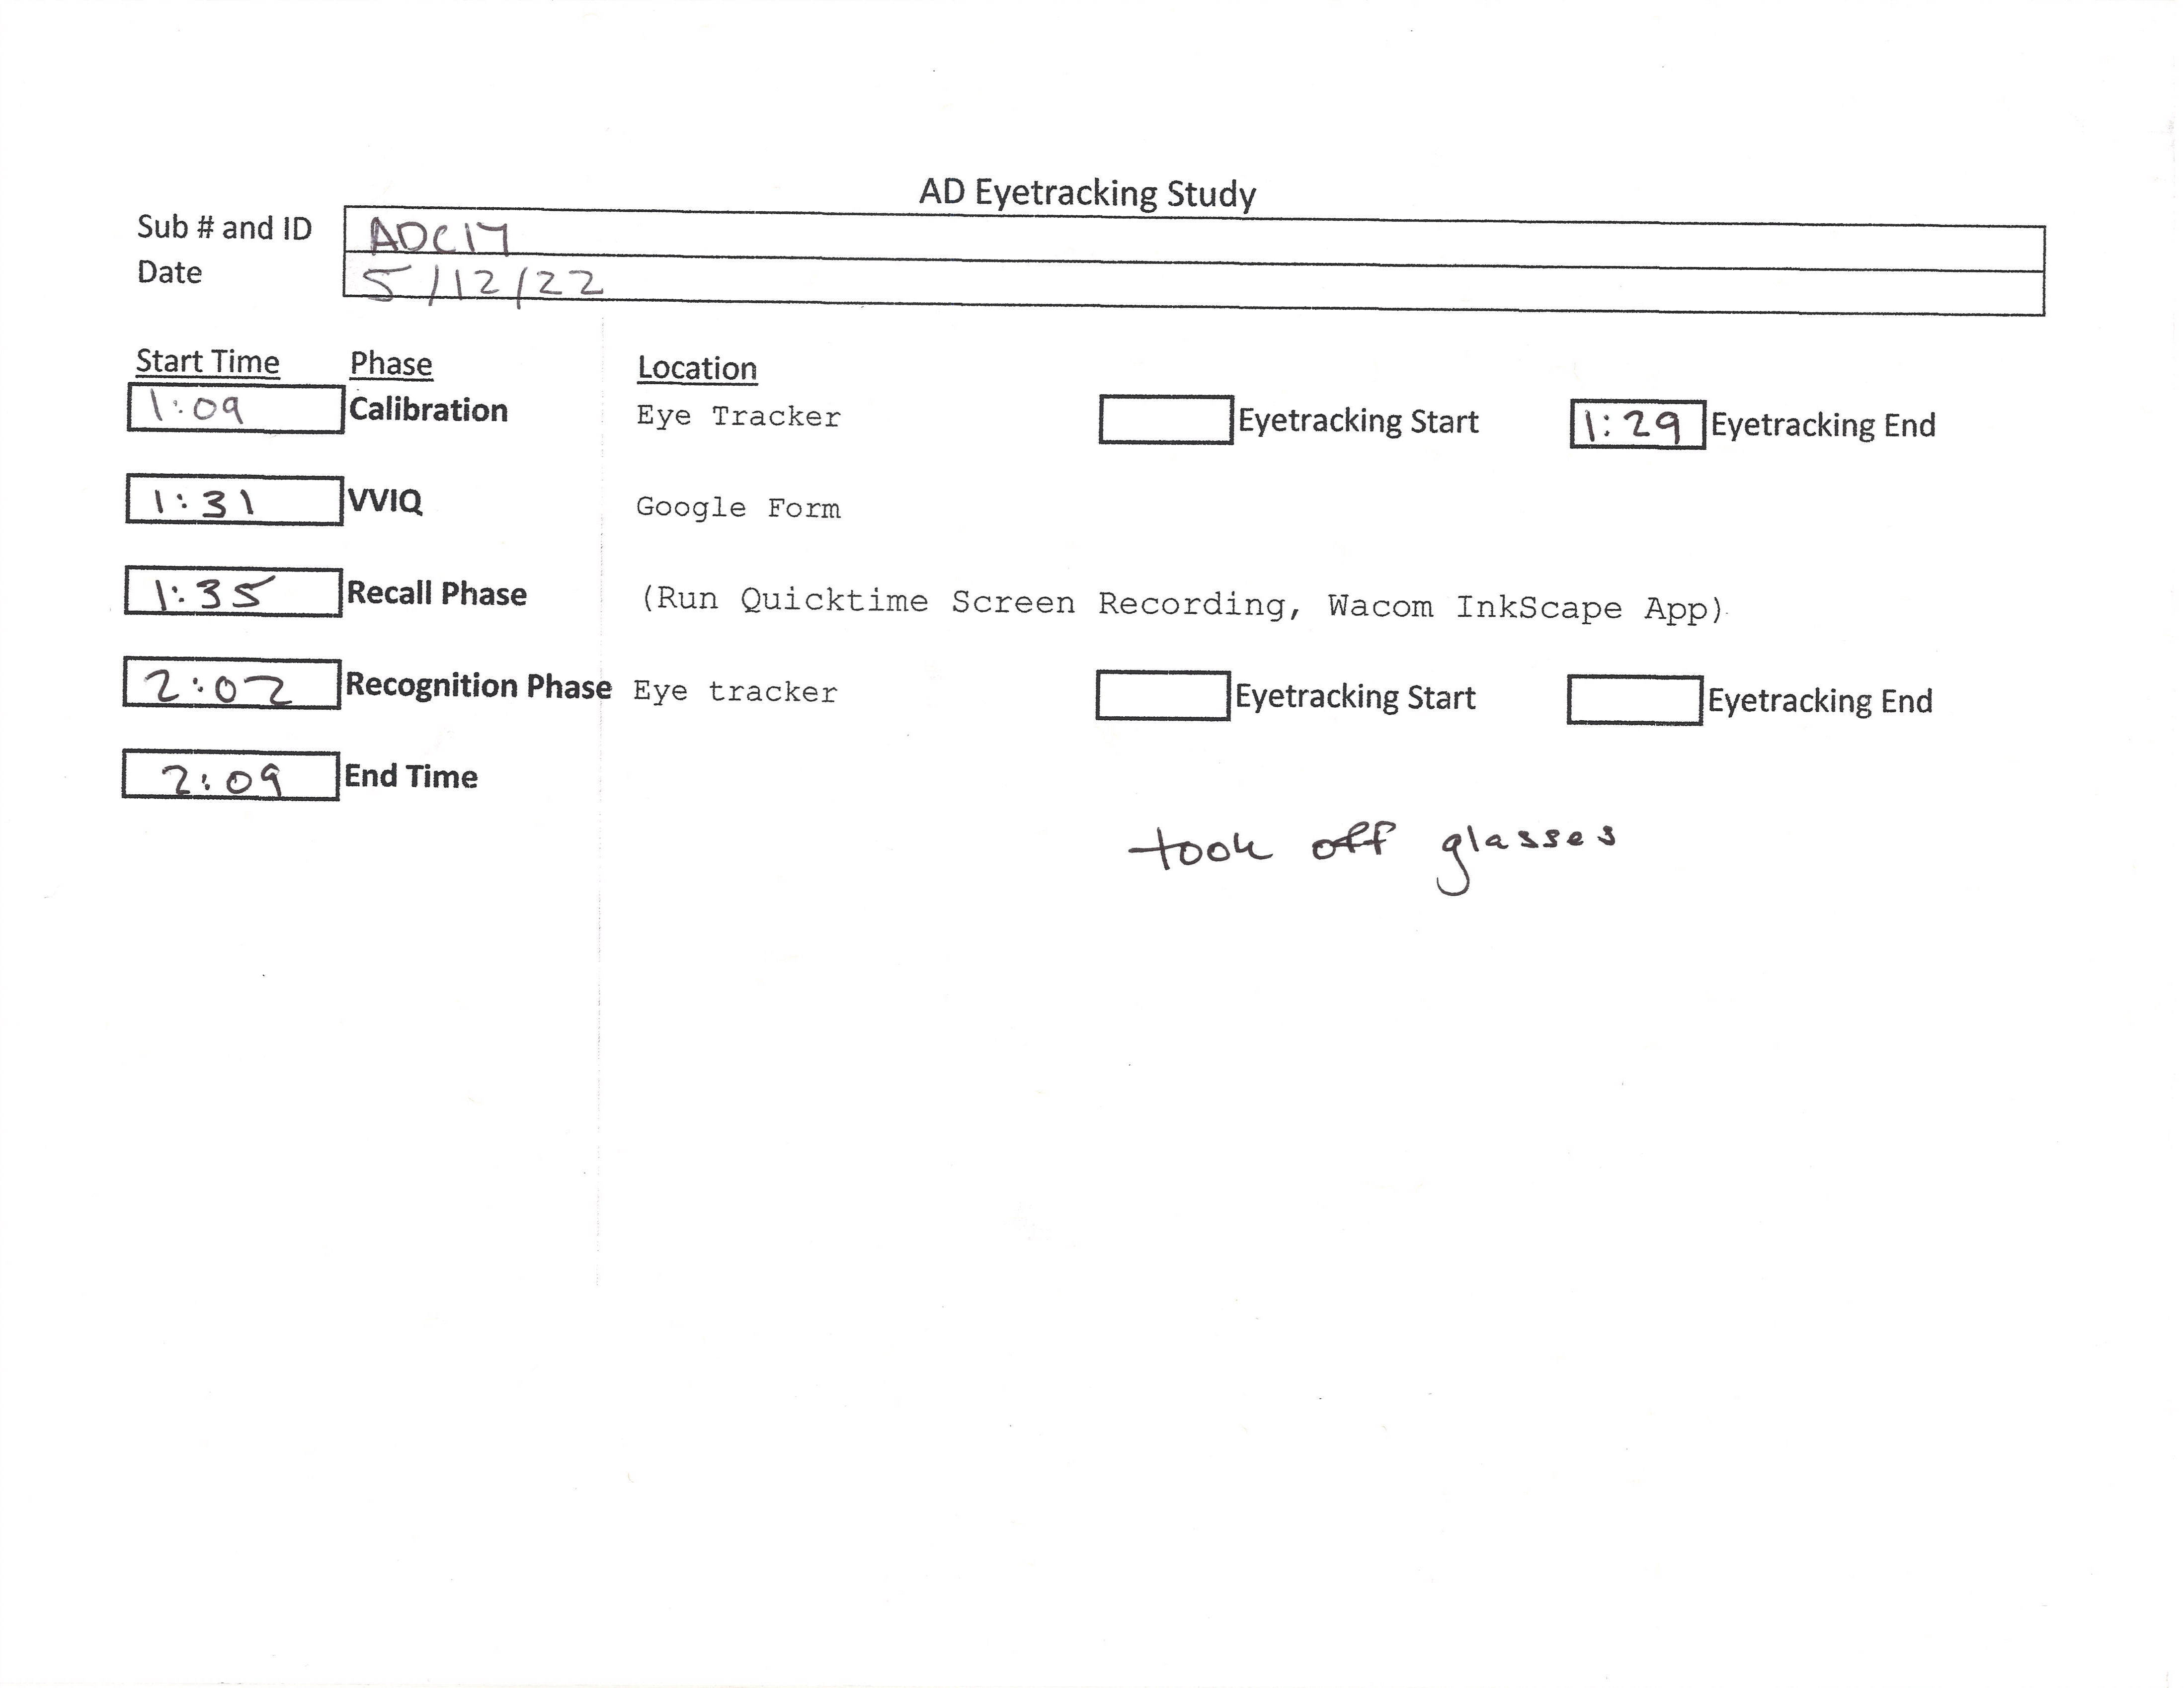 AD Eyetracking Study
Sub # and ID ADC14
Date 5/12/22
Start Time Phase Location
1:09 Calibration Eye Tracker Eyetracking Start 1:29 Eyetracking End
1:31 VVIQ Google Form
1:35 Recall Phase (Run Quicktime Screen Recording, Wacom InkScape App)
2:02 Recognition Phase Eye tracker Eyetracking Start Eyetracking End
2:09 End Time
took off glasses